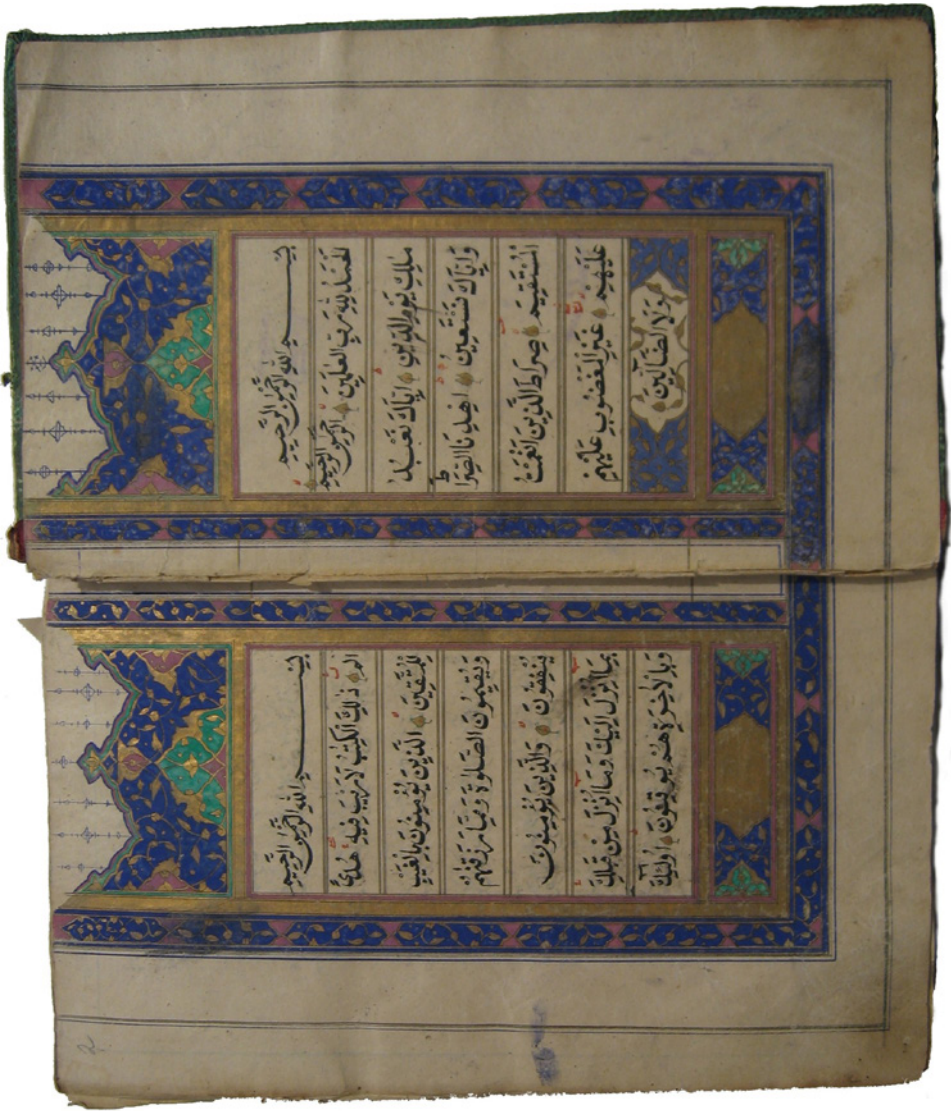 بِسْمِ اللهِ الرَّحْمٰنِ الرَّحِيمِ
اَلْحَمْدُ لِلّٰهِ رَبِّ الْعٰلَمِينَ الرَّحْمٰنِ الرَّحِيمِ
مٰلِكِ يَوْمِ الدِّينِ اِيَّاكَ نَعْبُدُ
وَاِيَّاكَ نَسْتَعِينُ اِهْدِنَا الصِّرَاطَ
الْمُسْتَقِيمَ صِرَاطَ الَّذِينَ اَنْعَمْتَ
عَلَيْهِمْ غَيْرِ الْمَغْضُوبِ عَلَيْهِمْ
وَلَا الضَّالِّينَ
بِسْمِ اللهِ الرَّحْمٰنِ الرَّحِيمِ
الم ذٰلِكَ الْكِتٰبُ لَا رَيْبَ فِيهِ هُدًى
لِلْمُتَّقِينَ الَّذِينَ يُؤْمِنُونَ بِالْغَيْبِ
وَيُقِيمُونَ الصَّلٰوةَ وَمِمَّا رَزَقْنٰهُمْ
يُنْفِقُونَ وَالَّذِينَ يُؤْمِنُونَ
بِمَا اُنْزِلَ اِلَيْكَ وَمَا اُنْزِلَ مِنْ قَبْلِكَ
وَبِالْاٰخِرَةِ هُمْ يُوقِنُونَ اُولٰئِكَ